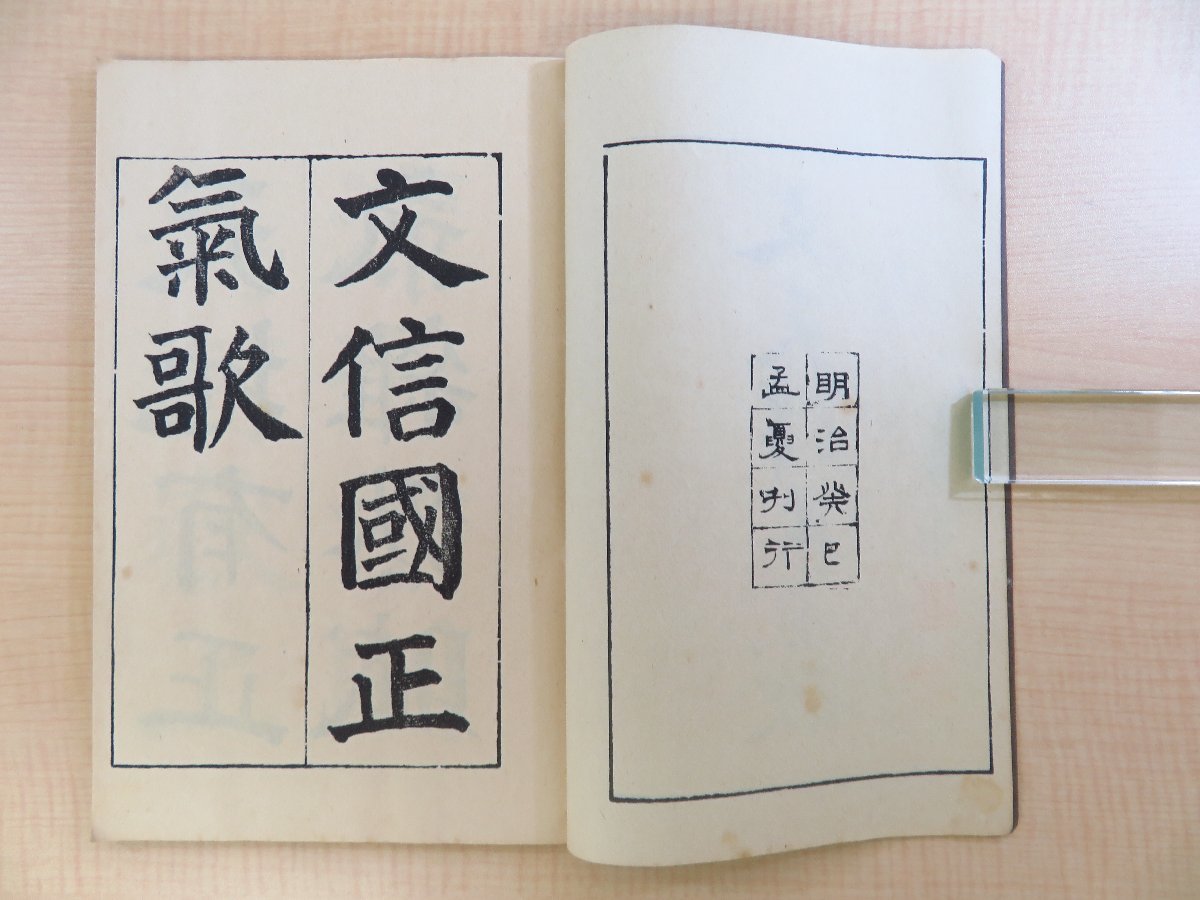 明治癸巳
孟夏刊行
文信國正
氣歌